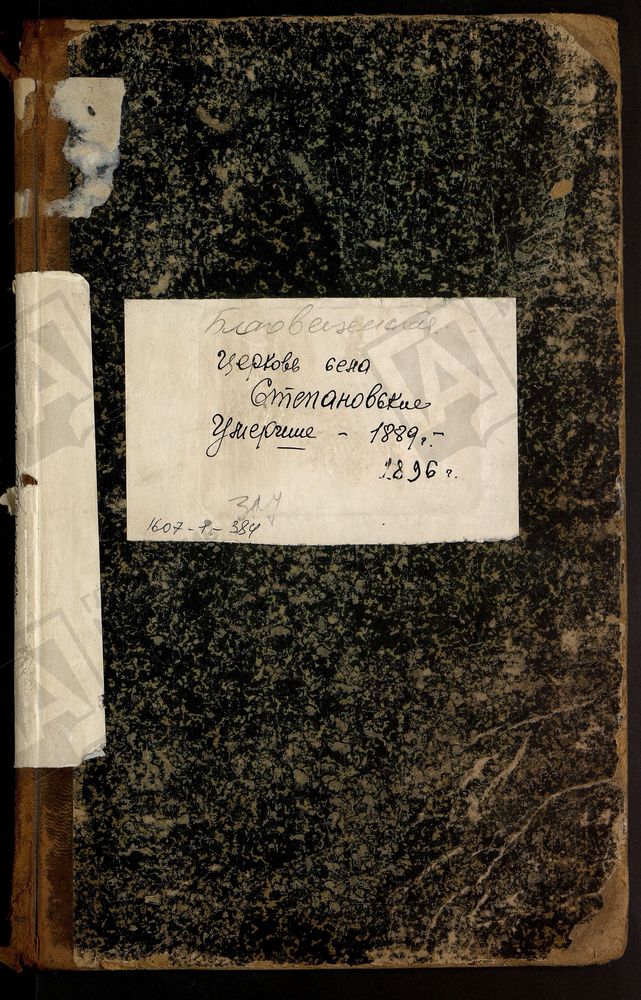 Благовещенская
Церковь села
Степановские
Умершие - 1889 г. -
1896 г.
1607-1-384